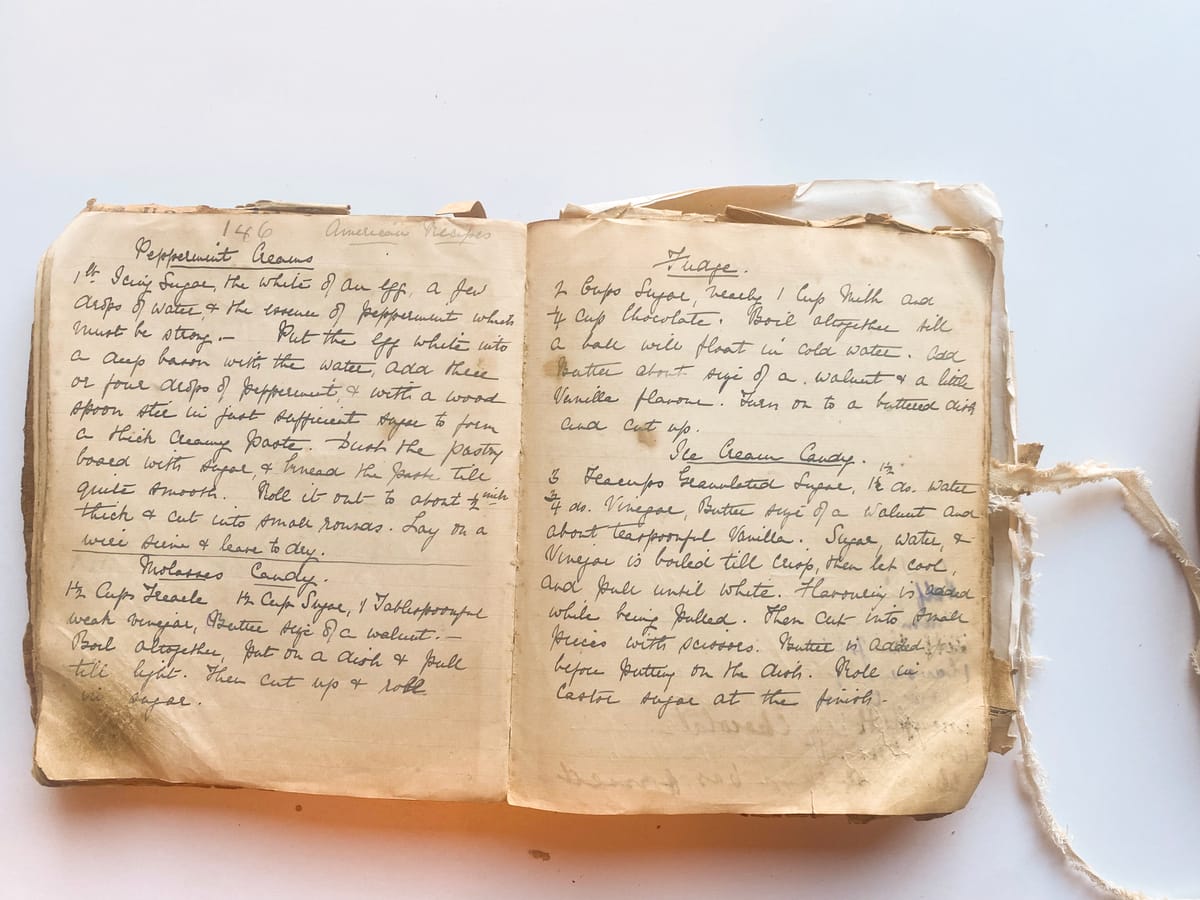 146 American Recipes
Peppermint Creams
1 lb Icing Sugar, the white of an egg, a few
drops of water, & the essence of Peppermint which
must be strong. — Put the egg white into
a deep bason with the water, add three
or four drops of peppermint, & with a wood
spoon stir in just sufficient sugar to form
a thick creamy paste. Dust the pastry
board with sugar, & knead the paste till
quite smooth. Roll it out to about ½ inch
thick & cut into small rounds. Lay on a
wire sieve & leave to dry.
Molasses Candy.
1½ Cups Treacle 1½ Cup Sugar, 1 Tablespoonful
weak vinegar, Butter size of a walnut. —
Boil altogether, put on a dish & pull
till light. Then cut up & roll
in sugar.
Fudge.
2 Cups Sugar, nearly 1 Cup Milk and
¼ Cup Chocolate. Boil altogether till
a ball will float in cold water. Add
Butter about size of a walnut & a little
Vanilla flavour. Turn on to a buttered dish
and cut up.
Ice Cream Candy.
3 Teacups Granulated Sugar, 1½ do. water
do. Vinegar, Butter size of a walnut and
about teaspoonful Vanilla. Sugar, water, &
Vinegar is boiled till crisp, then let cool,
and pull until white. Flavouring is added
while being pulled. Then cut into small
pieces with scissors. Butter is added
before putting on the dish. Roll in
Castor sugar at the finish.